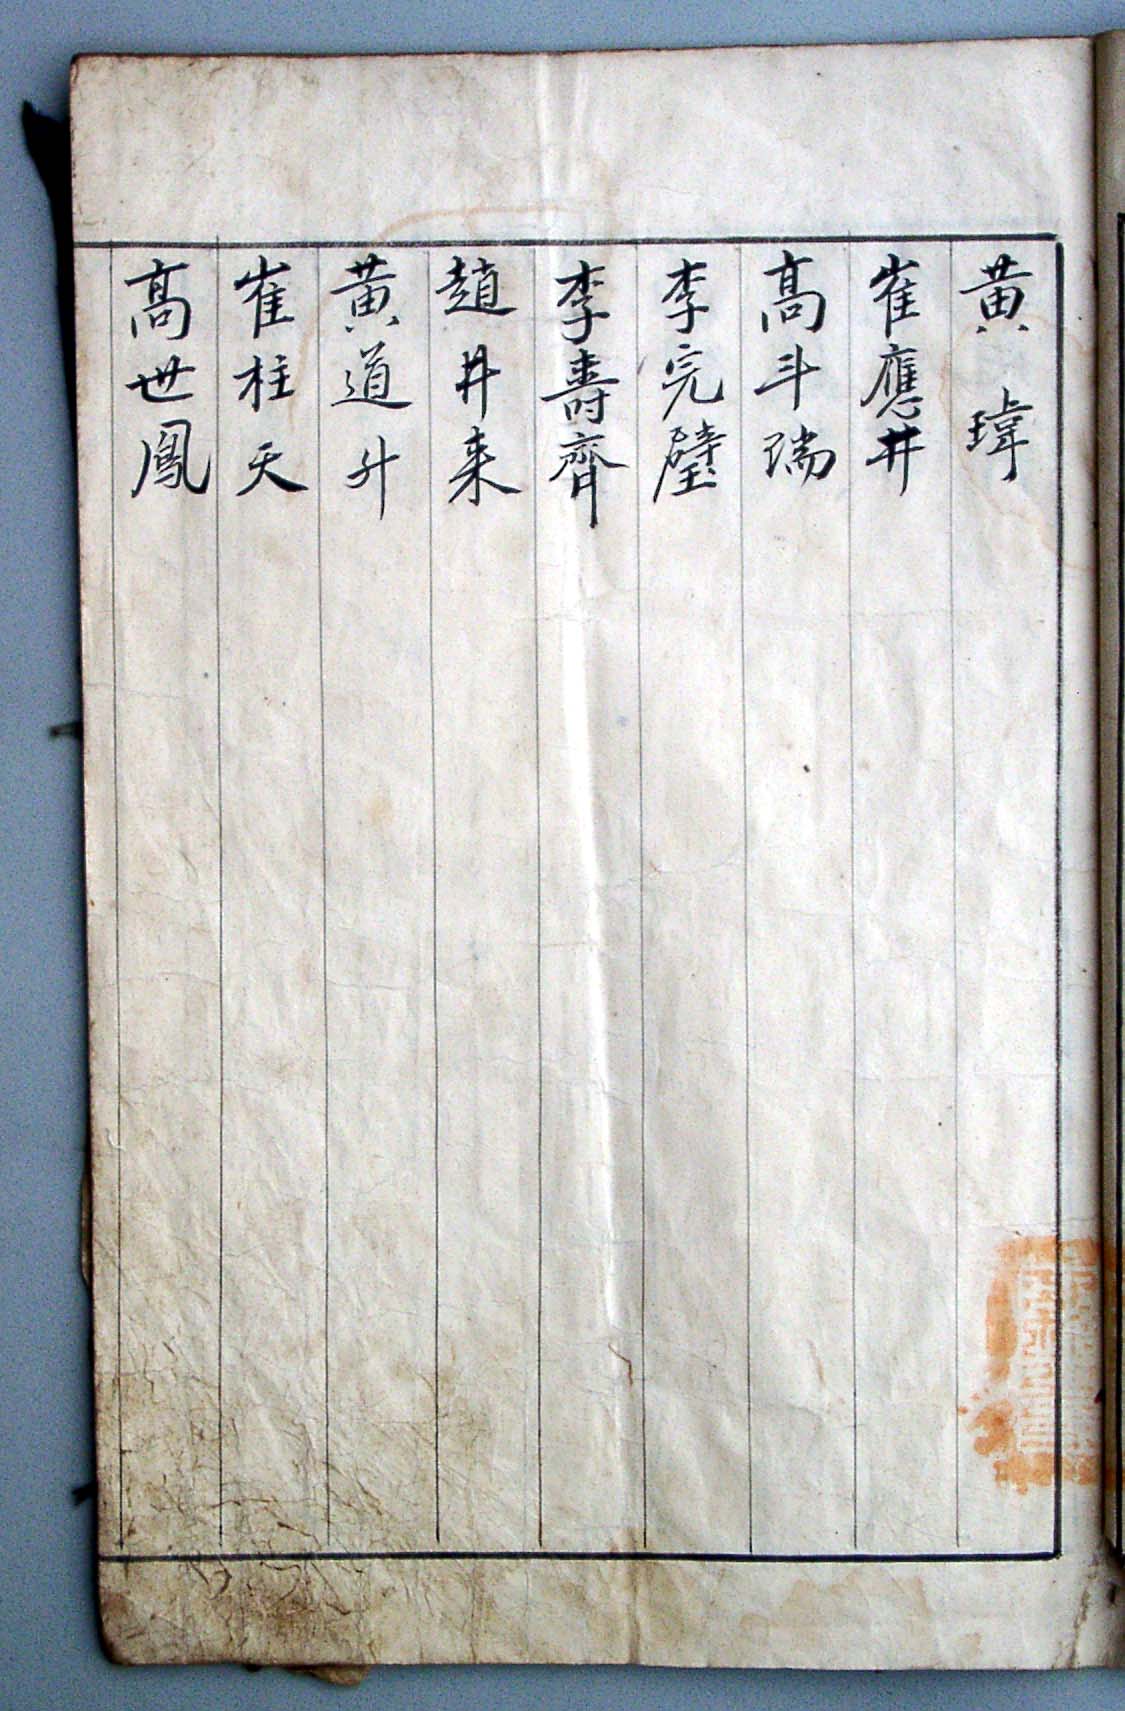 黄瑋
崔應井
高斗瑞
李完璧
李壽齊
趙井来
黄道升
崔柱天
高世鳳